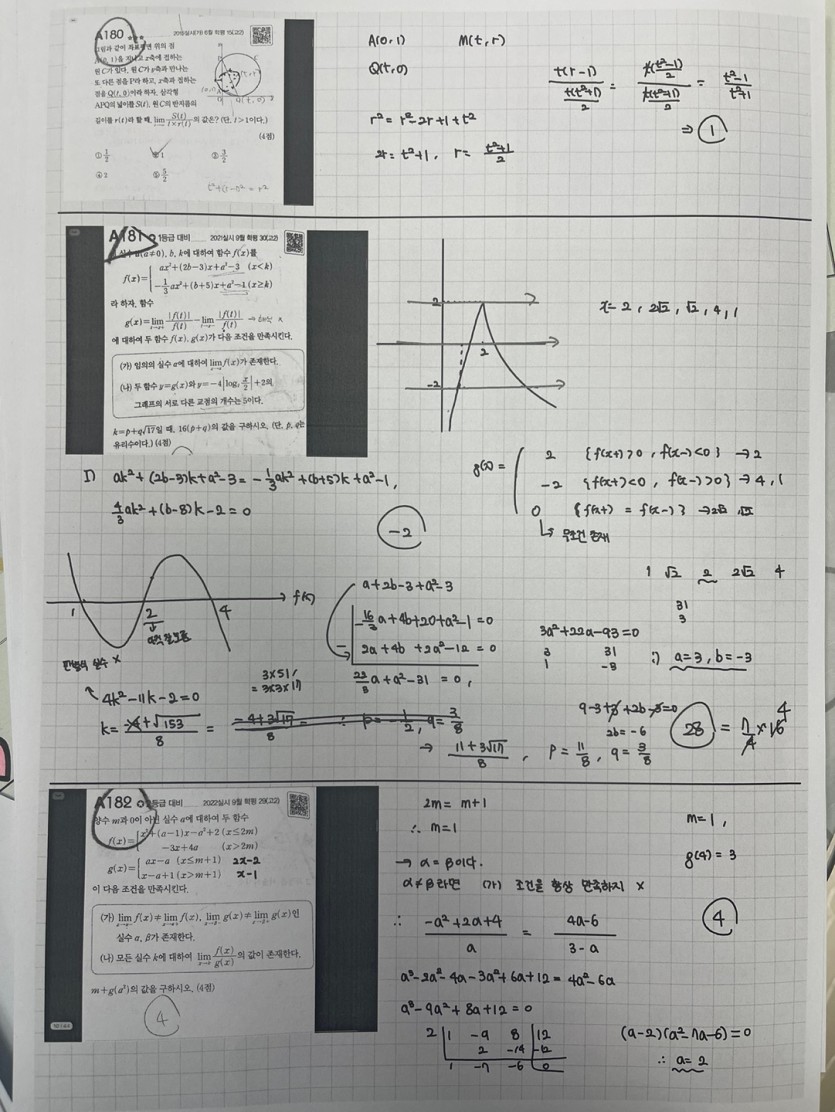 A180
2019실시(가) 6월 학평 15(고2)
그림과 같이 좌표평면 위의 점
(0, 1)을 지나고 x축에 접하는
원 C가 있다. 원 C가 y축과 만나는
또 다른 점을 P라 하고, x축과 접하는
점을 Q(t, 0)이라 하자. 삼각형
APQ의 넓이를 S(t), 원 C의 반지름의
길이를 r(t)라 할 때, lim S(t)/(t×r(t))의 값은? (단, t>1이다.)
(4점)
① 1/2 ② 1 ③ 3/2
④ 2 ⑤ 5/2
t²+(r-1)²=r²
A(0, 1) M(t, r)
Q(t, 0)
r²=r²-2r+1+t²
2r=t²+1, r=(t²+1)/2
t(r-1)/(t(t²+1)/2) = (t(t²-1)/2)/(t(t²+1)/2) = (t²-1)/(t²+1)
⇒ ①
A181 1등급 대비 2021실시 9월 학평 30(고2)
실수 a(a≠0), b, k에 대하여 함수 f(x)를
f(x)={ ax²+(2b-3)x+a²-3 (x<k)
-1/3ax²+(b+5)x+a²-1 (x≥k)
라 하자. 함수
g(x)=lim |f(t)|/f(t) - lim |f(t)|/f(t)
에 대하여 두 함수 f(x), g(x)가 다음 조건을 만족시킨다.
(가) 임의의 실수 α에 대하여 lim f(x)가 존재한다.
(나) 두 함수 y=g(x)와 y=-4|log₂ x/2|+2의
그래프의 서로 다른 교점의 개수는 5이다.
k=p+q√17일 때, 16(p+q)의 값을 구하시오. (단, p, q는
유리수이다.) (4점)
2
2
-2
x=2, 2√2, √2, 4, 1
g(x)=( 2 {f(x+)>0, f(x-)<0} → 2
-2 {f(x+)<0, f(x-)>0} → 4, 1
0 {f(x+) = f(x-)} → 2√2, √2
↳ 무조건 존재
I) ak²+(2b-3)k+a²-3=-1/3ak²+(b+5)k+a²-1,
4/3ak²+(b-8)k-2=0
-2
1 √2 2 2√2 4
1 2 4 → f(x)
4k²-11k-2=0
k= = 
3×51
=3×3×17
a+2b-3+a²-3
-16/3a+4b+20+a²-1=0
2a+4b+2a²-12=0
22/3a+a²-31=0,
3a²+22a-93=0
3 31
1 -3
31
3
∴) a=3, b=-3
9-3+3+2b-3=0
2b=-6
→ (11+3√17)/8, p=11/8, q=3/8
28 = 7/4×16 4
A182 1등급 대비 2022실시 9월 학평 29(고2)
양수 m과 0이 아닌 실수 a에 대하여 두 함수
f(x)={ x²+(a-1)x-a²+2 (x≤2m)
-3x+4a (x>2m)
g(x)={ ax-a (x≤m+1) 2x-2
x-a+1 (x>m+1) x-1
이 다음 조건을 만족시킨다.
(가) lim f(x)≠lim f(x), lim g(x)≠lim g(x)인
실수 α, β가 존재한다.
(나) 모든 실수 k에 대하여 lim f(x)/g(x)의 값이 존재한다.
m+g(a²)의 값을 구하시오. (4점)
4
2m=m+1
∴ m=1
→ α=β이다.
α≠β라면 (가) 조건을 항상 만족하지 X
∴ (-a²+2a+4)/a = (4a-6)/(3-a)
a³-2a²-4a-3a²+6a+12=4a²-6a
a³-9a²+8a+12=0
2 | 1 -9 8 12
2 -14 -12
1 -7 -6 0
(a-2)(a²-7a-6)=0
∴ a=2
m=1,
g(4)=3
4